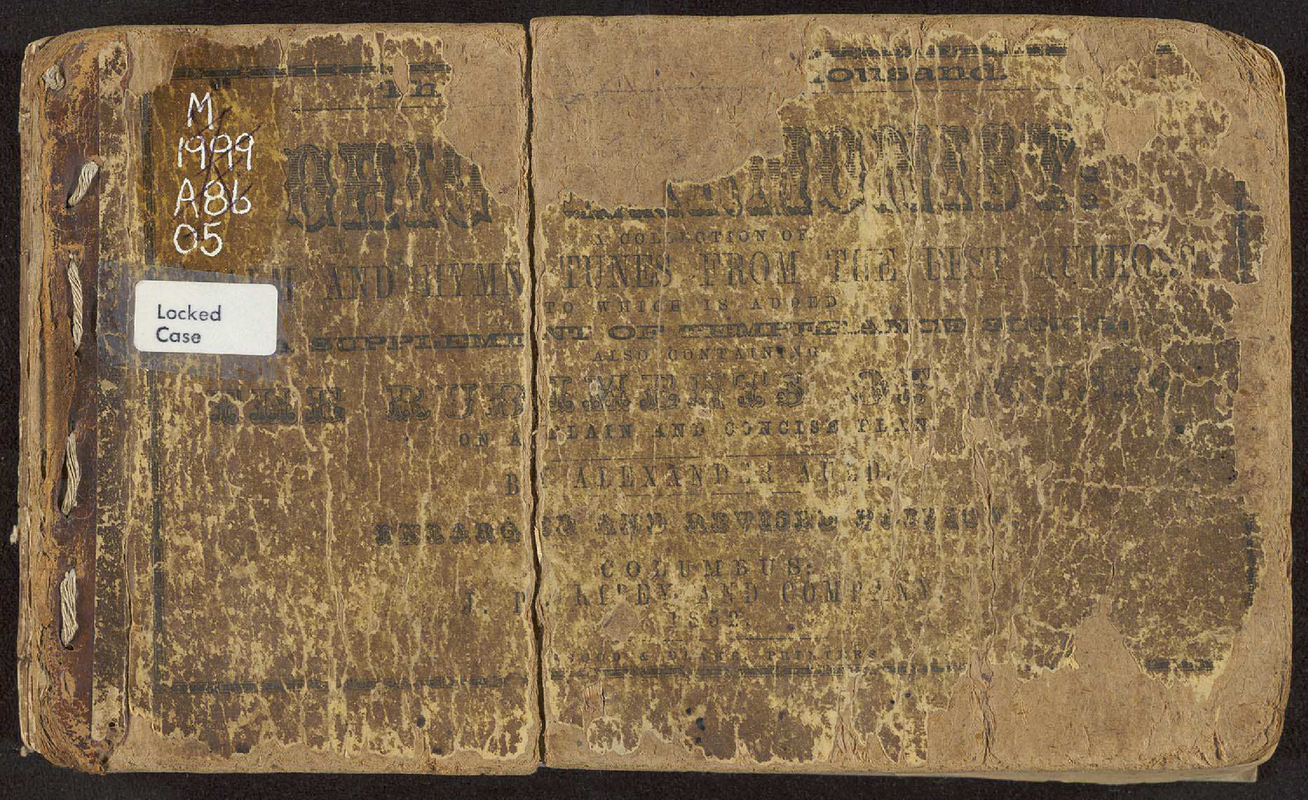 M
1999
A86
O5
Locked
Case
ousand.
OHIO HARMONIST:
A COLLECTION OF
PSALM AND HYMN TUNES FROM THE BEST AUTHORS:
TO WHICH IS ADDED
A SUPPLEMENT OF TEMPERANCE SONGS:
ALSO CONTAINING
THE RUDIMENTS OF MUSIC,
ON A PLAIN AND CONCISE PLAN.
BY ALEXANDER AULD.
ENLARGED AND REVISED EDITION.
COLUMBUS:
J. AND COMPANY.
PRINTERS.